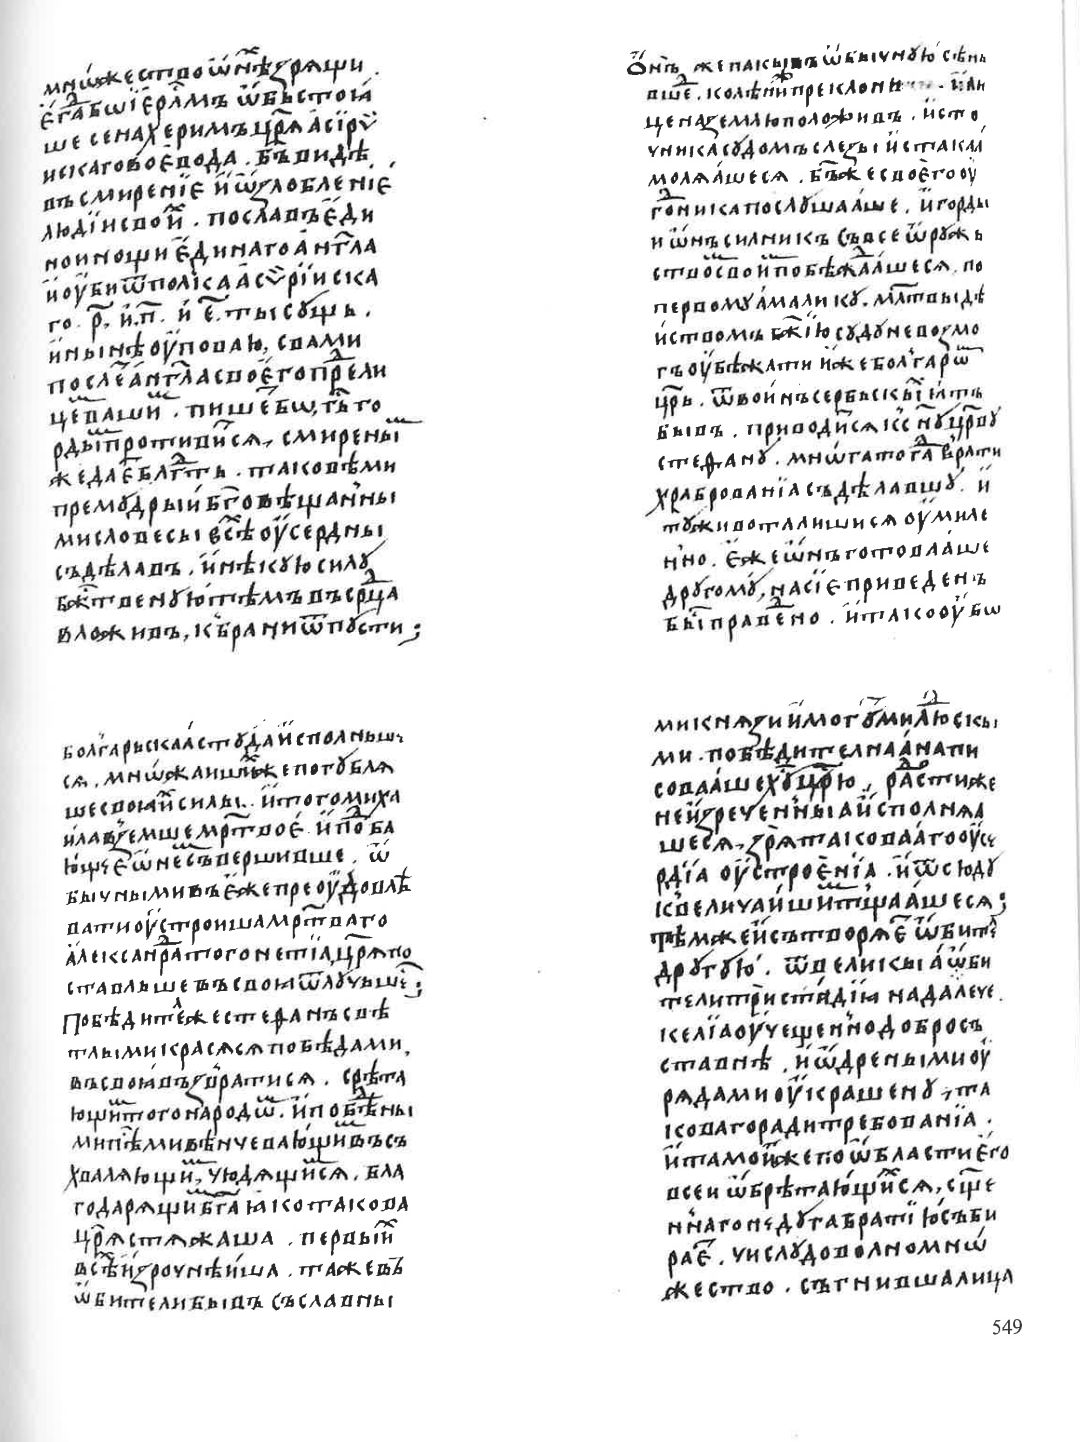 мнѡжество ѡ҆ нⷭ҇ѣ зрѧщи .
е҆гⷣа бѡ і҆ерⷭ҇лмъ ѡ҆бьстоꙗ
ше сенахеримъ цр҃ѧ а҆сїрꙿ
искаго воевода . бг҃ъ видѣ
въ смиренїе и҆ ѡ҆ѕлобленїе
людїи свои҆ⷯ . пославъ е҆ди
нои нощи е҆динаго а҆нг҃ла
и҆ ᲂу҆би ѿ полка а҆сѵ҆рїиска
го . р҃ . и҆ . п҃ . и҆ . е҃ . тысущь .
и҆ нынѣ ᲂу҆поваю , с вами
послеⷮ а҆нг҃ла своего прⷣели
це ваши҆ⷨ . пишеⷮ бѡ , гь҃ го
рдыⷨ противиⷮсѧ , смиреныⷨ
же даеⷮ блгⷣть . таковѣми
премудрыи бг҃овѣщанны
ми словесы всⷯѣ ᲂу҆сердны
съдѣлавъ . и҆ нѣкую силу
бжⷭ҇твеную тѣмъ въ срⷣца
вложивъ , к брани ѿпусти ;
Ѻ҆нъ же пакы въ ѡ҆бычную сѣнь
вшеⷣ . колѣнѣ преклони и҆ ли
це на землю положивъ . и҆сто
чника судомъ слезы и҆стака
молѧашесѧ . бг҃ъ же своего ᲂу҆
гоⷣника послушааше . и҆ горды
и ѡ҆нъ силникъ съ все ѡ҆ружь
ствоⷨ своиⷨ побѣжⷣаашесѧ . по
первому амалику . мл҃твы дѣ
иствомъ бж҃їю суду не возмо
гъ ᲂу҆бѣжати и҆же болгарѡⷨ
цр҃ь . ѿ вои нъ сербьскыⷯ ꙗ҆тъ
бывъ . приводиⷮсѧ к сн҃у цр҃ву
стефану . мнѡга тогⷣа в рати
храброванїа съдѣлавшу . и҆
ту живота лишисѧ ᲂу҆миле
нно . е҆же ѡ҆нъ готовлааше
другому , на сїе приведенъ
быⷭ҇ праведⷣно . и҆ тако ᲂу҆бѡ
болгарьскаа студа и҆сполньш
сѧ . мнѡжаишиⷯ же погублѧ
ше своиⷯ силы . и҆ того миха
ила вземше мр҃твое . и҆ поⷣба
ющее ѡ҆ не съвершивше . ѡ҆
бычными въ е҆же преᲂу҆довлѣ
вати ᲂу҆строиша мр҃тваго
а҆леѯанⷣра того нетїа , цр҃ѧ по
ставльше въ своа ѿлучьшеⷭ҇ ;
Побѣдитеⷧ же стефанъ свѣ
тлыми красѧсѧ побѣдами ,
въ своа възвратисѧ . срѣта
ющиⷨ того народѡⷨ . и҆ побⷣѣны
ми пⷭ҇ѣми вѣнчевающиⷨ въсъ
хвалѧющиⷨ , чюдѧщиⷨсѧ . бла
годарѧщиⷨ бг҃а ꙗ҆ко такова
цр҃ѧ стѧжаша . первыиⷯ
всⷯѣ и҆зрѧчнѣиша . таже въ
ѡ҆бители бывъ съ славны
ми кнѧзи и҆ могу҆ⷭ҇ милⷣюскы
ми . побѣдителнаа нⷭ҇ апи
соваашеⷭ҇ хⷭ҇у цр҃ю , раⷣсти же
неи҆зреченныа и҆сполнѧа
шесѧ , зрѧ таковааго ᲂу҆се
рдїа ᲂу҆строенїа . и҆ ѿсюду
к величаишиⷨ тщаашесѧ ;
Тѣмже и҆ сътворѧеⷮ ѡ҆битⷧ
другую . ѿ великыа ѡ҆би
тели три стадїа надалече .
келїа ᲂу҆чещенно добросъ
ставнѣ , и҆ ѡ҆дреными ᲂу҆
рѧдами ᲂу҆крашену , та
коваго ради требованїа .
и҆ тамо и҆же по ѡ҆бласти е҆го
всеи ѡ҆брѣтающиⷯсѧ , сщ҃е
ннаго недуга братїю събы
раеⷮ . числу доволно мнѡ
жество . съгнившаа лица
549